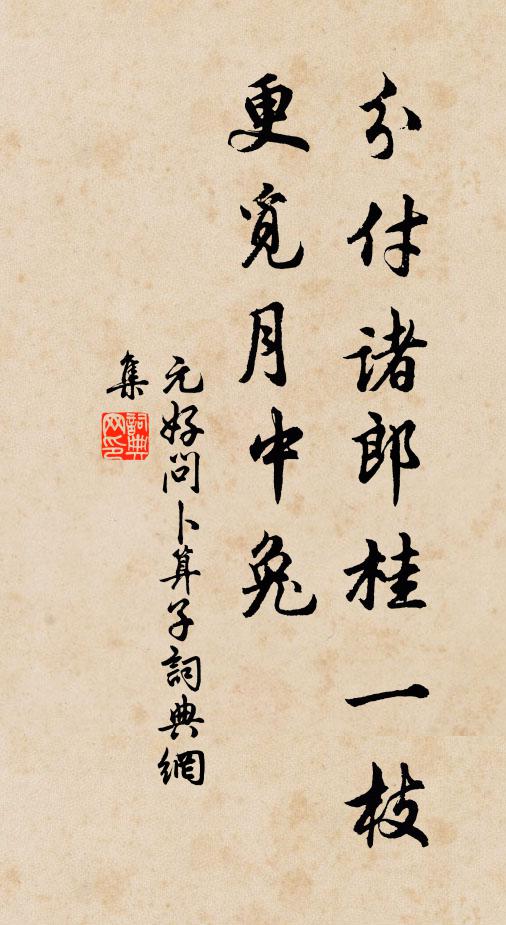 分付诸郎桂一枝
更觅月中兔
元好问卜算子詞典網
集
詞典网印